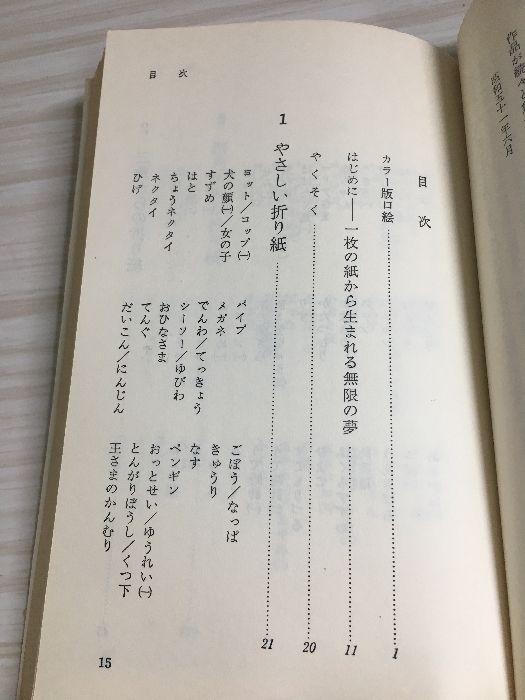 作品が続々と
昭和五十一年六月
目 次
目 次
カラー版口絵……1
はじめに——一枚の紙から生まれる無限の夢……11
やくそく……20
1 やさしい折り紙……21
ヨット/コップ㈠
犬の顔㈠/女の子
すずめ
はと
ちょうネクタイ
ネクタイ
ひげ
パイプ
メガネ
でんわ/てっきょう
シーソー/ゆびわ
おひなさま
てんぐ
だいこん/にんじん
ごぼう/なっぱ
きゅうり
なす
ペンギン
おっとせい/ゆうれい㈠
とんがりぼうし/くつ下
王さまのかんむり
15